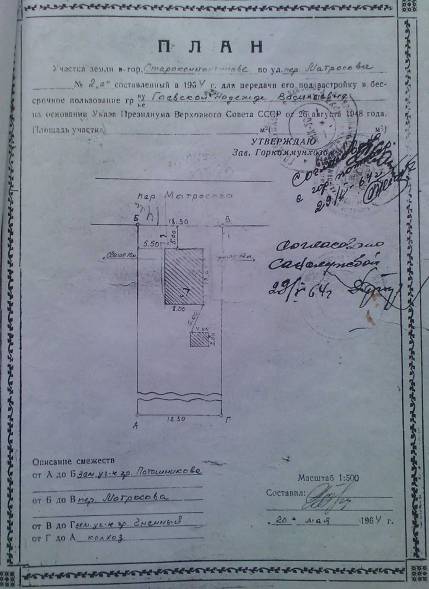 ПЛАН
Участка земли в гор. Староконстантинове по ул. пер. Матросова
№ 2 „а" составленный в 1964 г. для передачи его под застройку в бес-
срочное пользование гр. Гаевской Надежде
на основании Указа Президиума Верховного Совета СССР от 26 августа 1948 года.
(Площадь участка м²)
УТВЕРЖДАЮ
Зав. Горкоммунхозом
29/V-64г
пер Матросова
Б 18.50 В
5.50 5.00
согласовано
29/V 64г
8.00
А 18.50 Г
Описание смежеств
от А до Б зем. уч-к гр. Поташникова
от Б до В пер. Матросова
от В до Г зем. уч-к гр.
от Г до А колхоз
Масштаб 1:500
Составил:
„20" мая 1964 г.